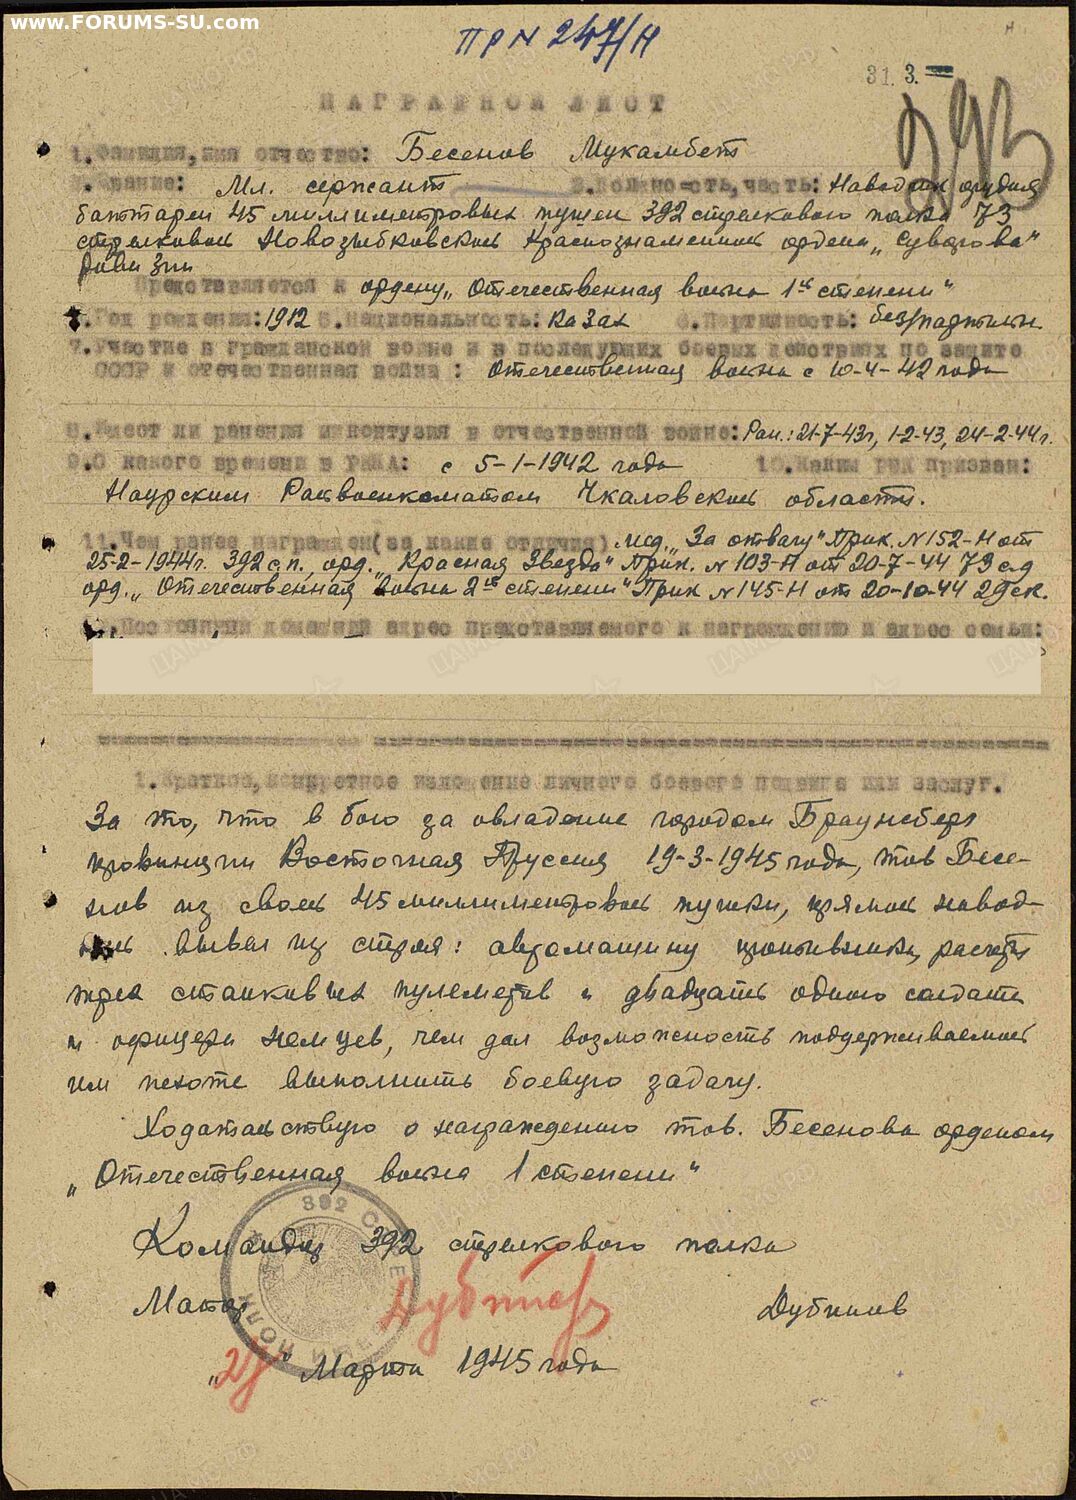 www.FORUMS-SU.com
ПР N 247/Н
31. 3.
293
НАГРАДНОЙ ЛИСТ
1. Фамилия, имя отчество: Бесенов Мукамбет
2. Звание: Мл. сержант 3. Должность, часть: Наводчик орудия
баттареи 45 миллиметровых пушек 392 стрелкового полка 73
стрелковой Новозыбковской Краснознаменной ордена „Суворова"
дивизии
Представляется к ордену „Отечественная война 1й степени"
4. Год рождения: 1912 5. Национальность: Казах 6. Партийность: без/партийн.
7. Участие в гражданской войне и в последующих боевых действиях по защите
СССР и отечественная война: Отечественная война с 10-4-42 года
8. Имеет ли ранения и контузия в отчественной войне: Ран.: 21-7-43г, 1-2-43, 24-2-44г.
9. С какого времени в РККА: с 5-1-1942 года 10. Каким РВК призван:
Раквоенкоматом Чкаловской области.
11. Чем ранее награжден (за какие отличия) мед. „За отвагу" Прик. N 152-Н от
25-2-1944г. 392 с.п., орд. „Красная Звезда" Прик. N 103-Н от 20-7-44 73 с.д
орд. „Отечественная война 2й степени" Прик N 145-Н от 20-10-44 29 ск.
12. Постоянный домашний адрес представляемого к награждению и адрес семьи:
1. Краткое, конкретное изложение личного боевого подвига или заслуг.
За то, что в бою за овладение городом Браунсберг
провинции Восточная Пруссия 19-3-1945 года, тов Бесе-
нов из своей 45 миллиметровой пушки, прямой навод-
кой вывел из строя: автомашину противника, расчеты
трех станковых пулеметов и двадцать одного солдата
и офицера немцев, чем дал возможность поддерживаемой
им пехоте выполнить боевую задачу.
Ходатайствую о награждению тов. Бесенова орденом
„Отечественная война 1 степени"
Командир 392 стрелкового полка
Майор Дубинов
„ " Марта 1945 года